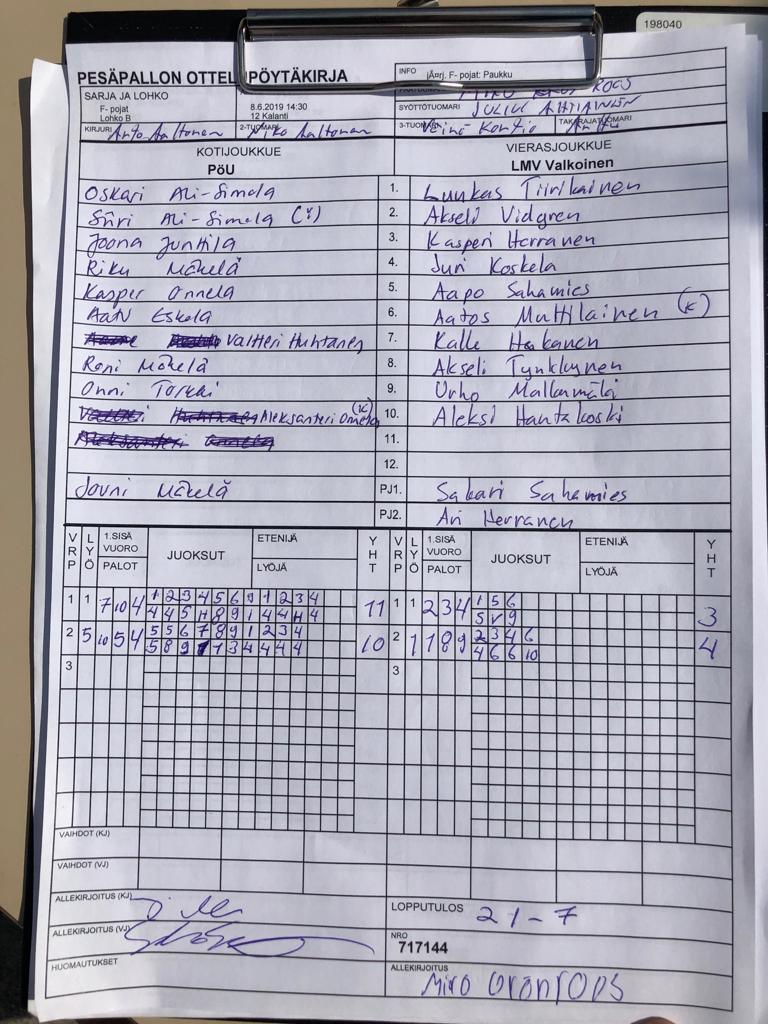 198040
PESÄPALLON OTTEL PÖYTÄKIRJA
INFO jÄ¤rj. F- pojat: Paukku
SARJA JA LOHKO
F- pojat
Lohko B
8.6.2019 14:30
12 Kalanti
SYÖTTÖTUOMARI
KIRJURI Anto Aaltonen 2-TUOMARI Niko Aaltonen 3-TUOMARI Väinö Kontio TAKARAJATUOMARI
KOTIJOUKKUE VIERASJOUKKUE
PöU LMV Valkoinen
Oskari Ali-Simola 1. Luukas Tiirikainen
Siiri Ali-Simola 2. Akseli Vidgren
Joona Juntila 3. Kasperi Herranen
Riku Mäkelä 4. Juri Koskela
Kasper Onnela 5. Aapo Sahamies
Aatu Eskola 6. Aatos Muttilainen (K)
Valtteri Huhtanen 7. Kalle Hakanen
Roni Mäkelä 8. Akseli Tynkkynen
Onni Torkki 9. Urho Mallamäki
Aleksanteri Onnela (K) 10. Aleksi Hantakoski
11.
12.
Jouni Mäkelä PJ1. Sakari Sahamies
PJ2. Ari Herranen
VRP LYÖ 1.SISÄ VUORO PALOT JUOKSUT ETENIJÄ LYÖJÄ YHT VRP LYÖ 1.SISÄ VUORO PALOT JUOKSUT ETENIJÄ LYÖJÄ YHT
1 1 7 10 4 11 1 1 2 3 4 1 5 6 3
2 5 10 5 4 5 5 6 7 8 9 1 2 3 4 10 2 1 1 8 9 2 3 4 6 4
4 6 6 10
3 3
VAIHDOT (KJ)
VAIHDOT (VJ)
ALLEKIRJOITUS (KJ) LOPPUTULOS 21-7
ALLEKIRJOITUS (VJ) NRO
717144
HUOMAUTUKSET ALLEKIRJOITUS
Miro